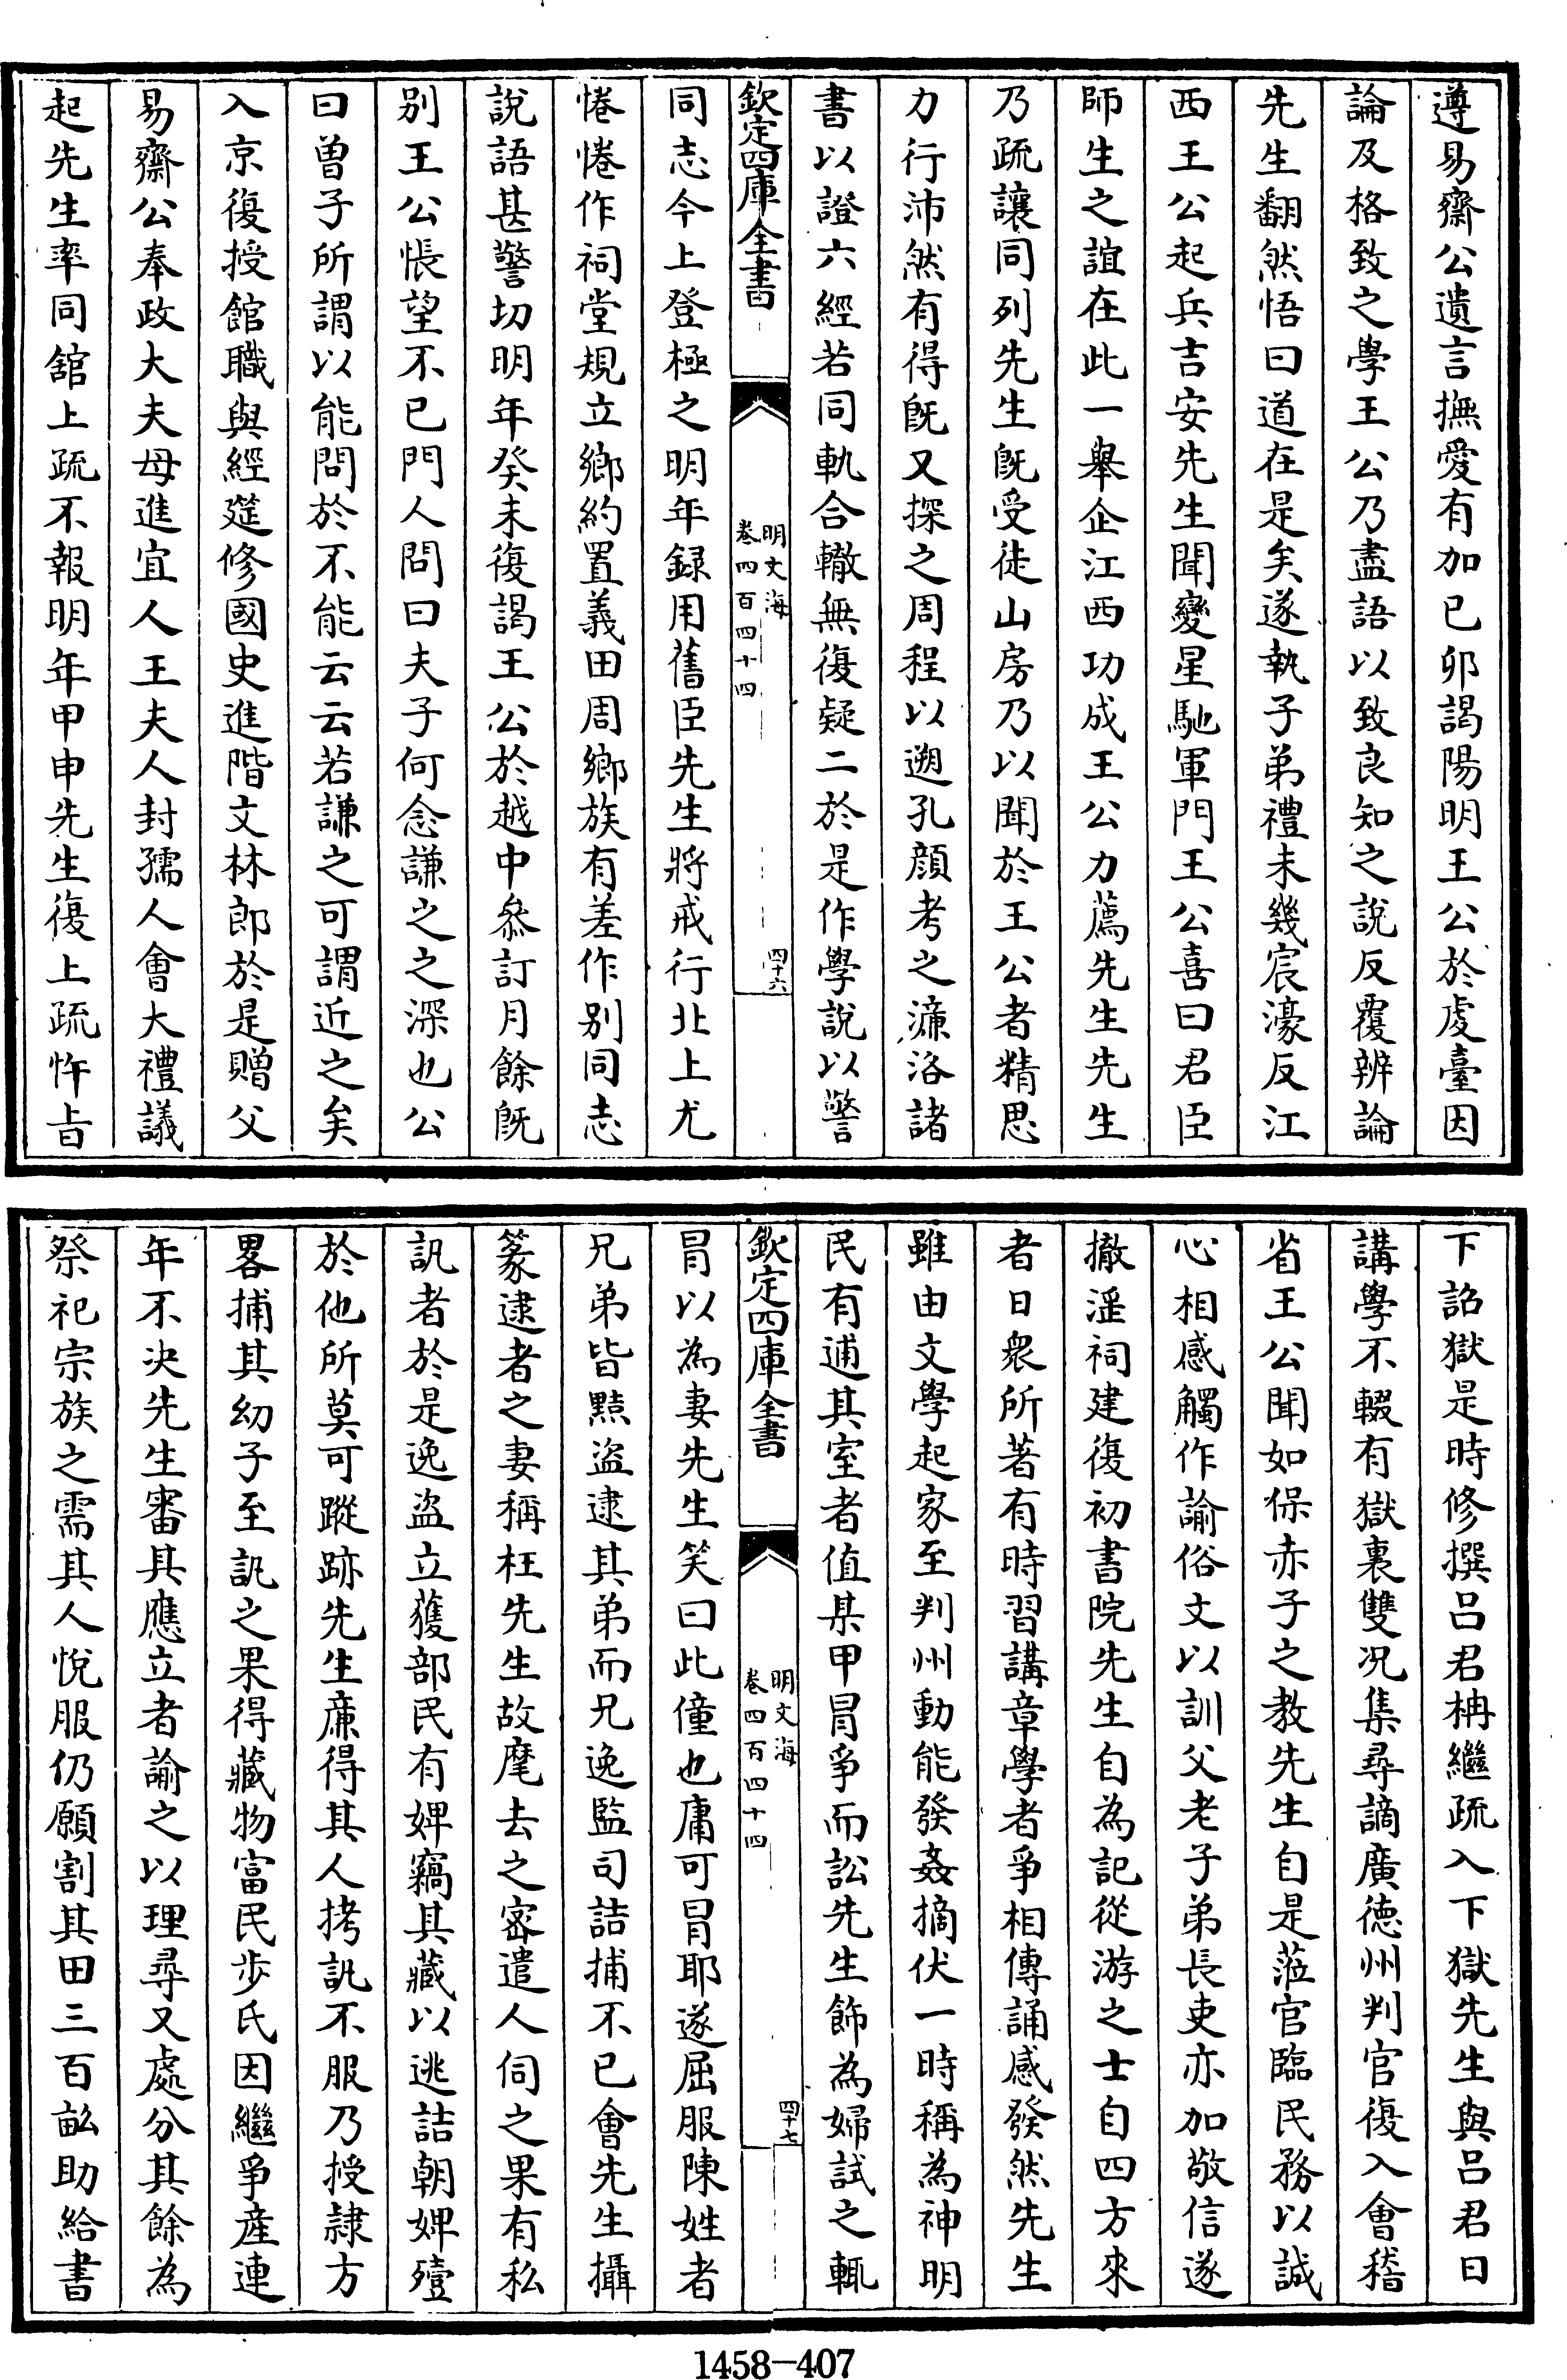 遵易齋公遺言撫愛有加已卯謁陽明王公於虔臺因
論及格致之學王公乃盡語以致良知之說反覆辨論
先生翻然悟曰道在是矣遂執子弟禮未幾宸濠反江
西王公起兵吉安先生聞變星馳軍門王公喜曰君臣
師生之誼在此一舉企江西功成王公力薦先生先生
乃疏讓同列先生旣受徒山房乃以聞於王公者精思
力行沛然有得旣又探之周程以遡孔顔考之濂洛諸
書以證六經若同軌合轍無復疑二於是作學說以警
欽定四庫全書
明文海
卷四百四十四
四十六
同志今上登極之明年録用舊臣先生將戒行北上尤
惓惓作祠堂規立鄉約置義田周鄉族有差作别同志
說語甚警切明年癸未復謁王公於越中叅訂月餘旣
别王公悵望不已門人問曰夫子何念謙之之深也公
曰曾子所謂以能問於不能云云若謙之可謂近之矣
入京復授館職與經筵修國史進階文林郎於是贈父
易齋公奉政大夫母進宜人王夫人封孺人會大禮議
起先生率同舘上疏不報明年甲申先生復上疏忤旨
下詔獄是時修撰吕君柟繼疏入下獄先生與吕君日
講學不輟有獄裏雙况集尋謫廣徳州判官復入會稽
省王公聞如保赤子之教先生自是蒞官臨民務以誠
心相感觸作諭俗文以訓父老子弟長吏亦加敬信遂
撤滛祠建復初書院先生自為記從游之士自四方來
者日衆所著有時習講章學者爭相傳誦感發然先生
雖由文學起家至判州動能發姦摘伏一時稱為神明
民有逋其室者值某甲冒爭而訟先生飾為婦試之輒
欽定四庫全書
明文海
卷四百四十四
四十七
冒以為妻先生笑曰此僮也庸可冒耶遂屈服陳姓者
兄弟皆黠盜逮其弟而兄逸監司詰捕不已會先生攝
篆逮者之妻稱枉先生故麾去之密遣人伺之果有私
訊者於是逸盜立獲部民有婢竊其藏以逃詰朝婢殪
於他所莫可蹤跡先生廉得其人拷訊不服乃授隷方
畧捕其幼子至訊之果得藏物富民步氏因繼爭産連
年不决先生審其應立者諭之以理尋又處分其餘為
祭祀宗族之需其人悅服仍願割其田三百畝助給書
1458—407